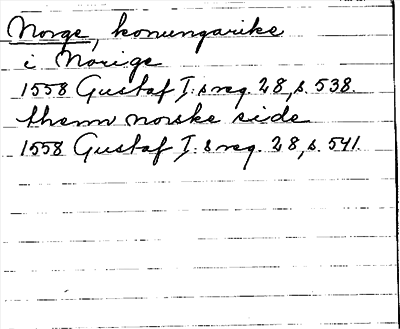 Norge, konungarike
i Norige
1558 Gustaf I:s reg. 28, s. 538.
themn norske side
1558 Gustaf I:s reg. 28, s. 541.